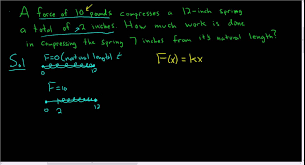 A force of 10 pounds compresses a 12-inch spring
a total of 2 inches. How much work is done
in compressing the spring 7 inches from its natural length?
Sol F=0 (natural length) F(x) = kx
0 12
F=10
0 2 12